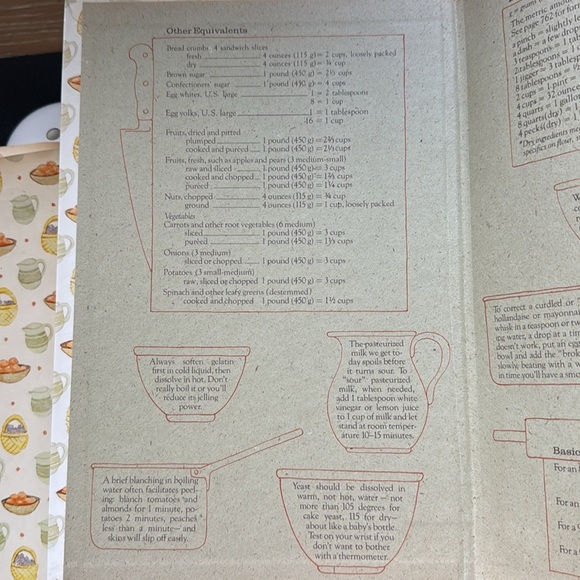 Other Equivalents
Bread crumbs 4 sandwich slices
fresh 4 ounces (115 g) = 2 cups, loosely packed
dry 4 ounces (115 g) = ¾ cup
Brown sugar 1 pound (450 g) = 2⅓ cups
Confectioners' sugar 1 pound (450 g) = 4 cups
Egg whites, U.S. large 1 = 2 tablespoons
8 = 1 cup
Egg yolks, U.S. large 1 = 1 tablespoon
16 = 1 cup
Fruits, dried and pitted
plumped 1 pound (450 g) = 2⅔ cups
cooked and puréed 1 pound (450 g) = 2⅓ cups
Fruits, fresh, such as apples and pears (3 medium-small)
raw and sliced 1 pound (450 g) = 3 cups
cooked and chopped 1 pound (450 g) = 1⅔ cups
puréed 1 pound (450 g) = 1¼ cups
Nuts, chopped 4 ounces (115 g) = ¾ cup
ground 4 ounces (115 g) = 1 cup, loosely packed
Vegetables
Carrots and other root vegetables (6 medium)
sliced 1 pound (450 g) = 3 cups
puréed 1 pound (450 g) = 1⅓ cups
Onions (3 medium)
sliced or chopped 1 pound (450 g) = 3 cups
Potatoes (3 small-medium)
raw, sliced or chopped 1 pound (450 g) = 3 cups
Spinach and other leafy greens (destemmed)
cooked and chopped 1 pound (450 g) = 1½ cups
Always soften gelatin
first in cold liquid, then
dissolve in hot. Don't
really boil it or you'll
reduce its jelling
power.
The pasteurized
milk we get to-
day spoils before
it turns sour. To
"sour" pasteurized
milk, when needed,
add 1 tablespoon white
vinegar or lemon juice
to 1 cup of milk and let
stand at room temper-
ature 10–15 minutes.
A brief blanching in boiling
water often facilitates peel-
ing: blanch tomatoes and
almonds for 1 minute, po-
tatoes 2 minutes, peaches
less than a minute—and
skins will slip off easily.
Yeast should be dissolved in
warm, not hot, water—not
more than 105 degrees for
cake yeast, 115 for dry—
about like a baby's bottle.
Test on your wrist if you
don't want to bother
with a thermometer.
The metric amou
See page 762 for fort
a pinch = slightly
a dash = a few drop
3 teaspoons = 1 t
2 tablespoons = 1
1 jigger = 3 tables
8 tablespoons =
2 cups = 1 pint
4 cups = 32 ounce
4 quarts = 1 gallon
8 quarts (dry) = 1
4 pecks (dry) = 1
*Dry ingredients me
specifics on flour,
To correct a curdled or
hollandaise or mayonnai
whisk in a teaspoon or tw
ing water, a drop at a tim
doesn't work, put an egg
bowl and add the "brok
slowly, beating with a w
in time you'll have a smo
Basic
For an
For an
For a
For a